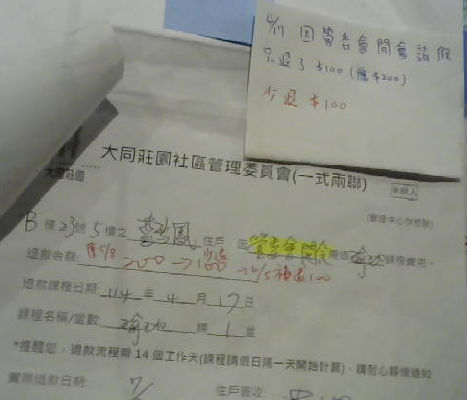 4/17 因管委會開會請假
只退了 $100 (應 $200)
少退 $100
大同莊園
大同莊園社區管理委員會(一式兩聯)
申請人
(管理中心存根聯)
B 棟 23號 5樓之 住戶 因 管委會開會 需退 瑜珈 課程費用。
退款金額: 200 → 100 補退100
退款課程日期: 114 年 4 月 17 日
課程名稱/堂數: 瑜珈 課 1 堂
*提醒您,退款流程需 14 個工作天(課程請假日隔一天開始計算),請耐心靜候通知
實際退款日期: 7/ 住戶簽收: